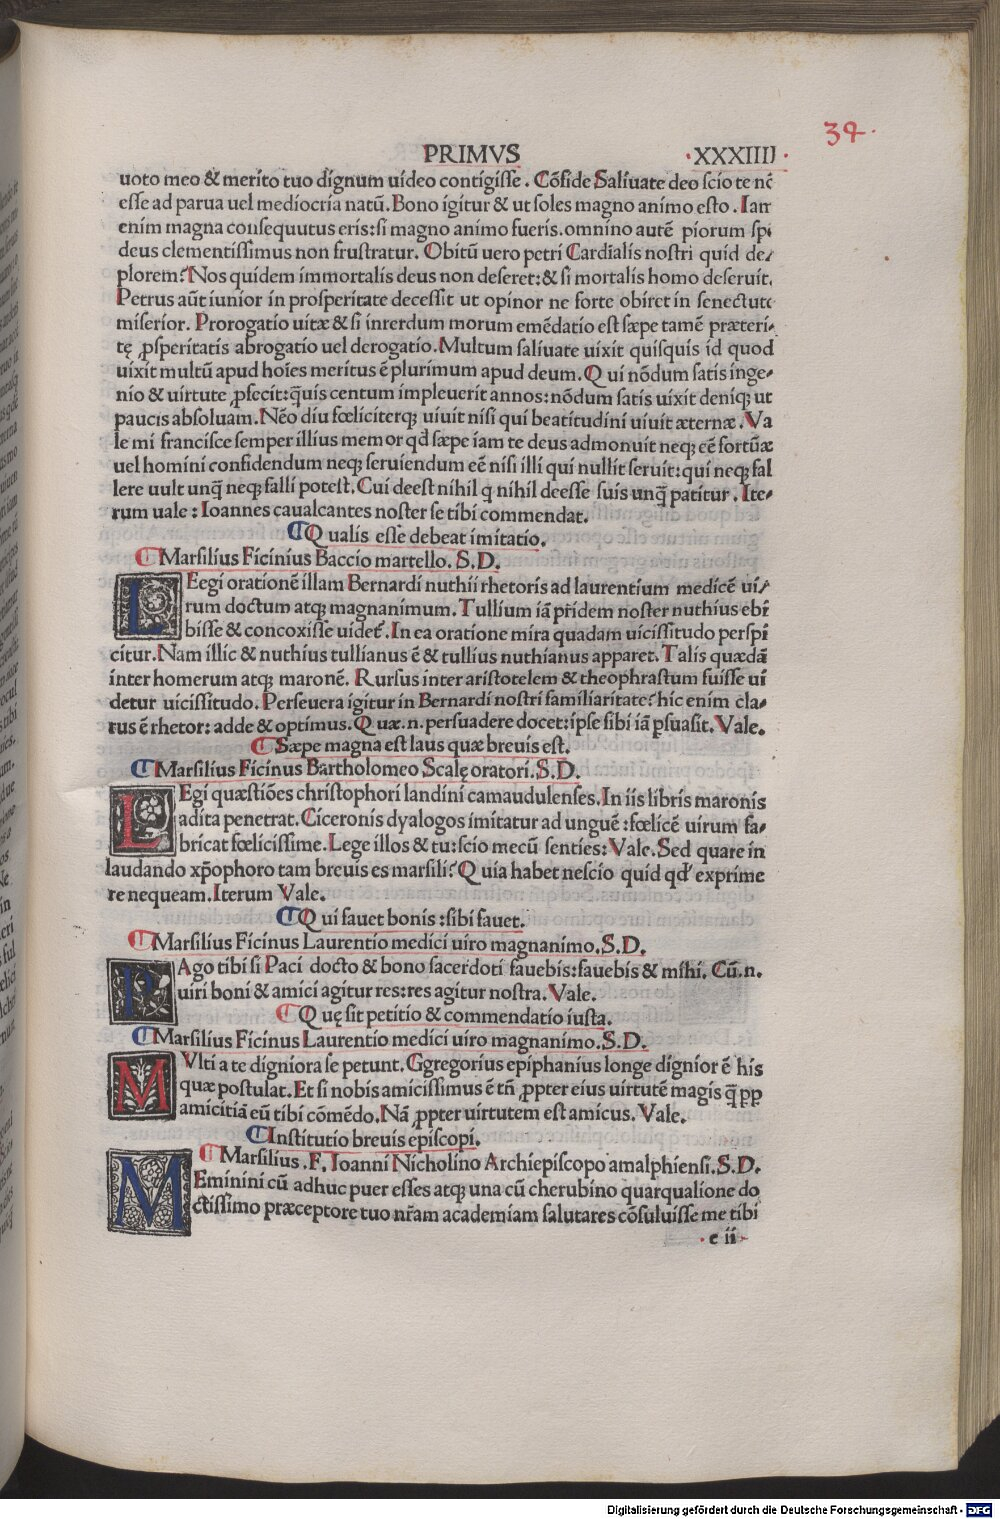 34.
PRIMVS .XXXIIII.
uoto meo & merito tuo dignum uideo contigisse. Cōfide Saliuate deo scio te nō
esse ad parua uel mediocria natū. Bono igitur & ut soles magno animo esto. Iam
enim magna consequutus eris: si magno animo fueris. omnino autē piorum spē
deus clementissimus non frustratur. Obitū uero petri Cardialis nostri quid de/
plorem? Nos quidem immortalis deus non deseret: & si mortalis homo deseruit.
Petrus aūt iunior in prosperitate decessit ut opinor ne forte obiret in senectute
miserior. Prorogatio uitæ & si inrerdum morum emēdatio est sæpe tamē præteri/
tę ꝓsperitatis abrogatio uel derogatio. Multum saliuate uixit quisquis id quod
uixit multū apud hoīes meritus ē plurimum apud deum. Qui nōdum satis inge/
nio & uirtute ꝓfecit: q̄uis centum impleuerit annos: nōdum satis uixit deniqꝫ ut
paucis absoluam. Nēo diu fœliciterqꝫ uiuit nisi qui beatitudini uiuit æternæ. Va
le mi francisce semper illius memor qđ sæpe iam te deus admonuit neqꝫ eē fortūæ
uel homini confidendum neqꝫ seruiendum eē nisi illi qui nulli seruit: qui neqꝫ fal
lere uult unq̄ neqꝫ falli potest. Cui deest nihil q nihil deesse suis unq̄ patitur. Ite/
rum uale: Ioannes caualcantes noster se tibi commendat.
Qualis esse debeat imitatio.
Marsilius Ficinius Baccio martello. S.D.
LEegi orationē illam Bernardi nuthii rhetoris ad laurentium medicē ui/
rum doctum atqꝫ magnanimum. Tullium iā pridem noster nuthius ebi
bisse & concoxisse uidet̄. In ea oratione mira quadam uicissitudo perspi
citur. Nam illic & nuthius tullianus ē & tullius nuthianus apparet. Talis quædā
inter homerum atqꝫ maronē. Rursus inter aristotelem & theophrastum fuisse ui
detur uicissitudo. Perseuera igitur in Bernardi nostri familiaritate? hic enim cla/
rus ē rhetor: adde & optimus. Quæ.n. persuadere docet: ipse sibi iā ꝑsuasit. Vale.
Sæpe magna est laus quæ breuis est.
Marsilius Ficinus Bartholomeo Scalę oratori. S.D.
LEgi quæstiōes christophori landini camaudulenses. In iis libris maronis
adita penetrat. Ciceronis dyalogos imitatur ad unguē: fœlicē uirum fa/
bricat fœlicissime. Lege illos & tu: scio mecū senties: Vale. Sed quare in
laudando xp̄ophoro tam breuis es marsili? Quia habet nescio quid qđ exprime
re nequeam. Iterum Vale.
Qui fauet bonis: sibi fauet.
Marsilius Ficinus Laurentio medici uiro magnanimo. S.D.
PAgo tibi si Paci docto & bono sacerdoti fauebis: fauebis & mihi. Cū.n.
uiri boni & amici agitur res: res agitur nostra. Vale.
Quę sit petitio & commendatio iusta.
Marsilius Ficinus Laurentio medici uiro magnanimo. S.D.
MVlti a te digniora se petunt. Ggregorius epiphanius longe dignior ē his
quæ postulat. Et si nobis amicissimus ē tn̄ ꝓpter eius uirtutē magis q̄ ꝓp
amicitiā eū tibi cōmēdo. Nā ꝓpter uirtutem est amicus. Vale.
Institutio breuis episcopi.
Marsilius .F. Ioanni Nicholino Archiepiscopo amalphiensi. S.D.
MEminini cū adhuc puer esses atqꝫ una cū cherubino quarqualione do
ctissimo præceptore tuo nr̄am academiam salutares cōsuluisse me tibi
.e ii.
Digitalisierung gefördert durch die Deutsche Forschungsgemeinschaft - DFG